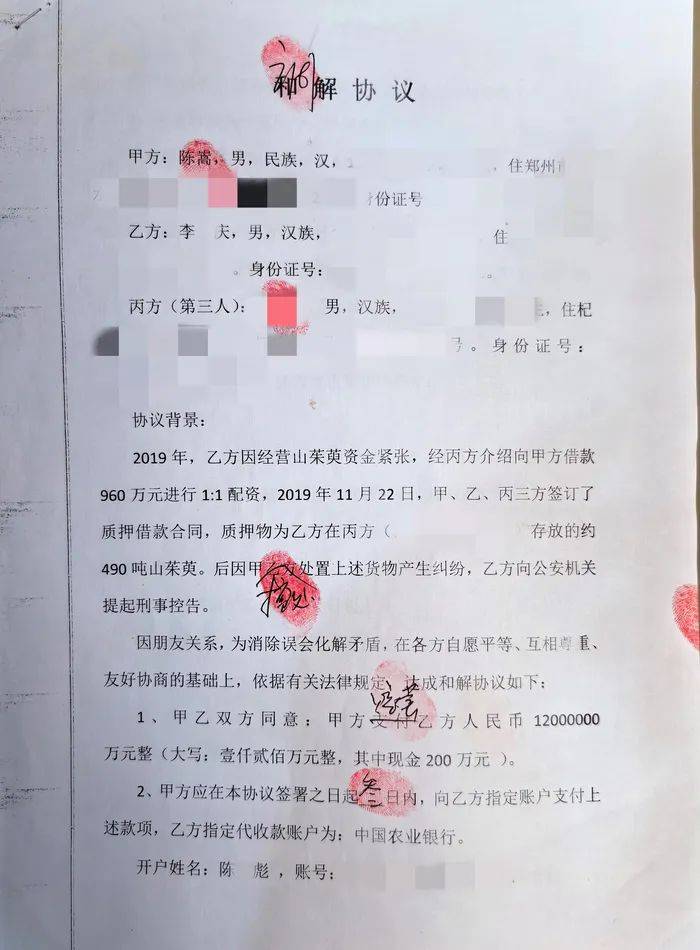 解协议
甲方：陈嵩，男，民族，汉，住郑州市
身份证号
乙方：李 庆，男，汉族，住
。身份证号：。
丙方（第三人）：男，汉族，住杞
号。身份证号：
协议背景：
2019年，乙方因经营山茱萸资金紧张，经丙方介绍向甲方借款
960万元进行1:1配资，2019年11月22日，甲、乙、丙三方签订了
质押借款合同，质押物为乙方在丙方（存放的约
490吨山茱萸。后因甲处置上述货物产生纠纷，乙方向公安机关
提起刑事控告。
因朋友关系，为消除误会化解矛盾，在各方自愿平等、互相尊重、
友好协商的基础上，依据有关法律规定，达成和解协议如下：
1、甲乙双方同意：甲方支付乙方人民币12000000
万元整（大写：壹仟贰佰万元整，其中现金200万元）。
2、甲方应在本协议签署之日起叁日内，向乙方指定账户支付上
述款项，乙方指定代收款账户为：中国农业银行。
开户姓名：陈 彪，账号：